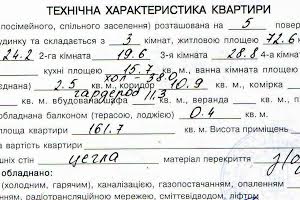 ТЕХНІЧНА ХАРАКТЕРИСТИКА КВАРТИРИ
(посімейного, спільного заселення) розташована на 5 повер
удинку та складається з 3 кімнат, житловою площею 72.6
24.2 2-га кімната 19.6 3-я кімната 28.8 4-а кімната
кухні площею 15.7 кв. м., ванна кімната площею
хол - 38.0
єднана) 2.5 кв. м, коридор 10.9 кв. м., комірка
гардероб 11.3
кв. м. вбудована шафа кв. м., веранда кв. м.,
обладнана балконом (терасою, лоджією) 0.4 кв. м.
площа квартири 161.7 кв. м. Висота приміщень
шніх стін цегла матеріал перекриття з/б
обладнано:
(холодним, гарячим), каналізацією, газопостачанням, опаленням
радіотрансляційною мережею, сміттєвводом, ліфтом